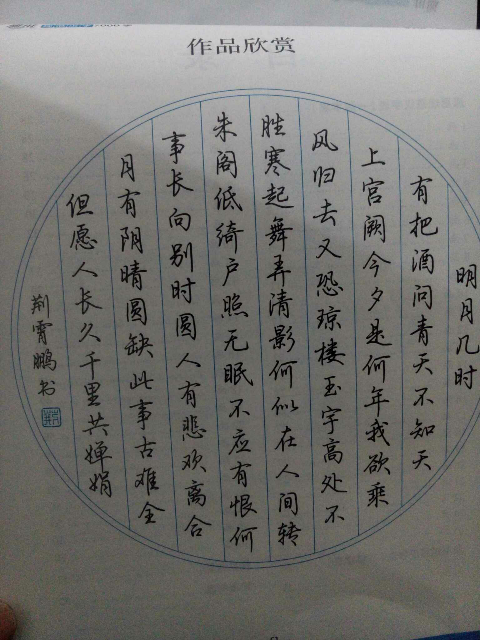 作品欣赏
明月几时
有把酒问青天不知天
上宫阙今夕是何年我欲乘
风归去又恐琼楼玉宇高处不
胜寒起舞弄清影何似在人间转
朱阁低绮户照无眠不应有恨何
事长向别时圆人有悲欢离合
月有阴晴圆缺此事古难全
但愿人长久千里共婵娟
荆霄鹏书